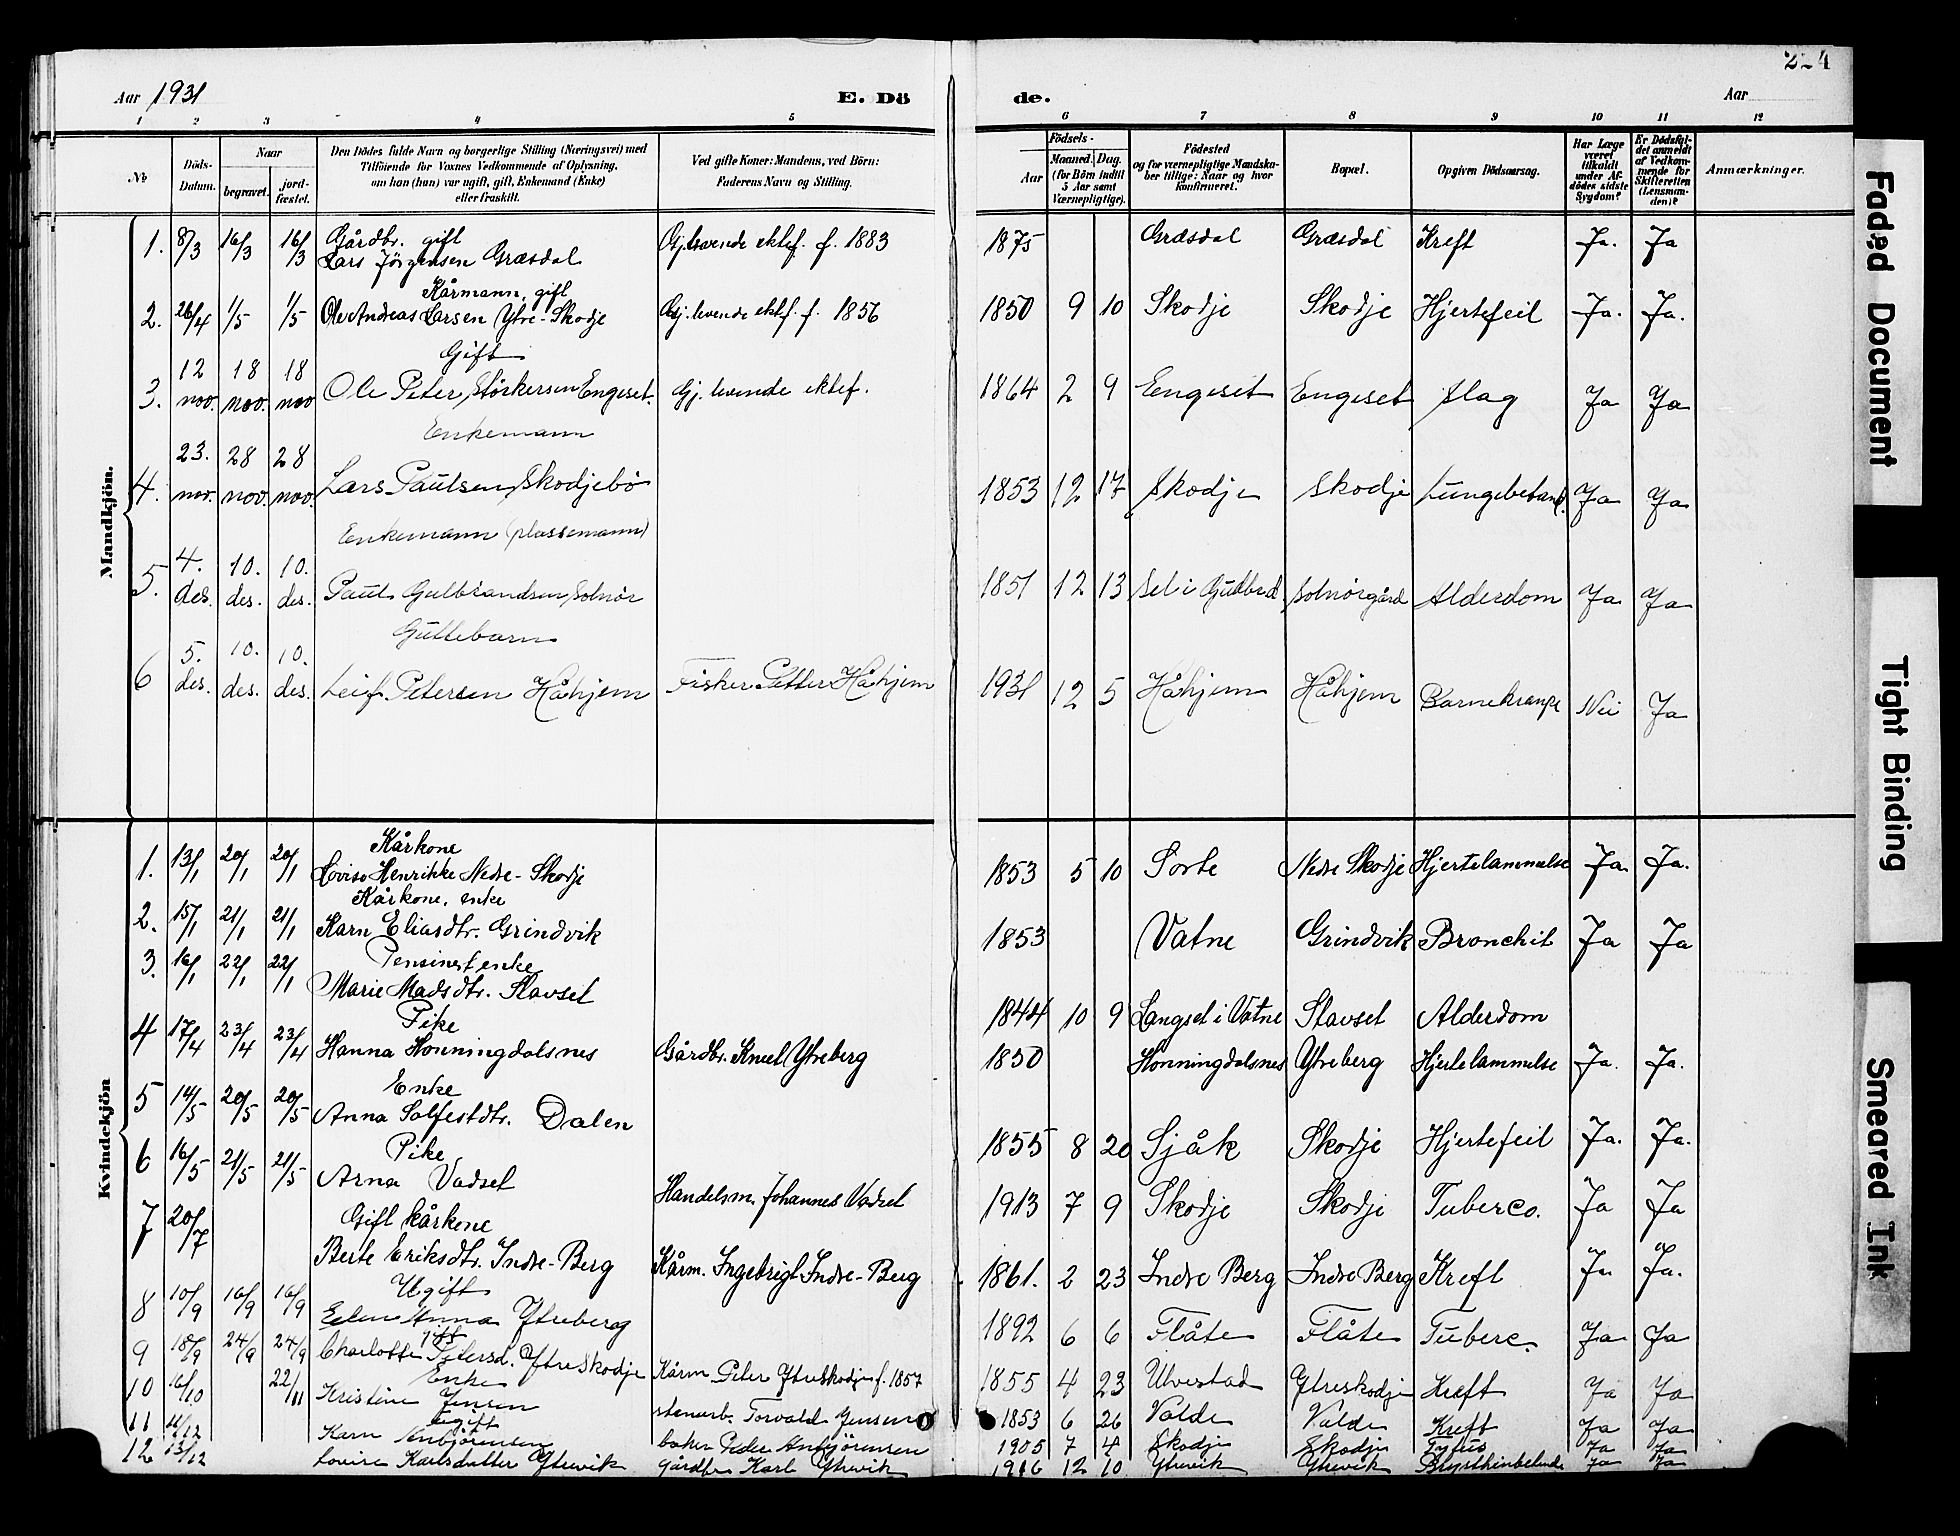 224
Aar 1931 E. Dö de. Aar
1 2 3 4 5 6 7 8 9 10 11 12
№
Döds-Datum.
Naar
begravet. jord-fæstet.
Den Dödes fulde Navn og borgerlige Stilling (Næringsvei) med
Tilföiende for Voxnes Vedkommende af Oplysning,
om han (hun) var ugift, gift, Enkemand (Enke)
eller fraskilt.
Ved gifte Koner: Mandens, ved Börn:
Faderens Navn og Stilling.
Födsels-
Aar Maaned. Dag.
(for Börn indtil
5 Aar samt
Værnepligtige).
Födested
og for værnepligtige Mandska-
ber tillige: Naar og hvor
konfirmeret.
Bopæl.
Opgiven Dödsaarsag.
Har Læge
været
tilkaldt
under Af-
dödes sidste
Sygdom?
Er Dødsfal-
det anmeldt
af Vedkom-
mende for
Skifteretten
(Lensman-
den)?
Anmærkninger.
Mandkjön.
Gårdbr. gift
1. 8/3 16/3 16/3 Lars Jörgensen Græsdal Gj.levende ektef. f. 1883 1875 Græsdal Græsdal Kreft Ja. Ja
Kårmann, gift
2. 26/4 1/5 1/5 Ole Andreas Larsen Ytre-Skodje Gj. levende ektf. f. 1856 1850 9 10 Skodje Skodje Hjertefeil Ja. Ja.
Gift
3. 12 nov. 18 nov. 18 nov Ole Peter Störkersen Engeset. Gj. levende ektef. 1864 2 9 Engeset Engeset Slag Ja Ja
Enkemann
4. 23. nov. 28 nov. 28 nov. Lars Paulsen Skodjebö 1853 12 17 Skodje Skodje Lungebetend. Ja Ja
Enkemann (plassemann)
5. 4. des. 10. des. 10. des. Paul Gulbrandsen Solnör 1851 12 13 Sel i Gudbrd Solnörgård Alderdom Ja Ja
Guttebarn
6 5. des. 10. des. 10. des. Leif Petersen Håhjem Fisker Petter Håhjem 1931 12 5 Håhjem Håhjem Barnekrampe Nei Ja
Kvindekjön
Kårkone
1. 13/1 20/1 20/1 Lovise Henrikke Nedre-Skodje 1853 5 10 Sorte Nedre Skodje Hjertelammelse Ja Ja.
Kårkone, enke
2. 15/1 21/1 21/1 Karn Eliasdtr. Grindvik 1853 Vatne Grindvik Bronchit Ja Ja
Pensinert enke
3. 16/1 22/1 22/1 Marie Madsdtr. Slavset 1844 10 9 Langset i Vatne Stavset Alderdom
Pike
4 17/4 23/4 23/4 Hanna Honningdalsnes Gårdbr. Knut Ytreberg 1850 Honningdalsnes Ytreberg Hjertelammelse Ja. Ja.
Enke
5 14/5 20/5 20/5 Anna Solfestdtr. Dalen 1855 8 20 Sjåk Skodje Hjertefeil Ja. Ja.
Pike
6 16/5 21/5 21/5 Arna Vadset Handelsm. Johannes Vadset 1913 7 9 Skodje Skodje Tuberco. Ja Ja
Gift kårkone
7 20/7 Berte Eriksdtr. Indre-Berg Kårm. Ingebrigt Indre-Berg 1861. 2 23 Indre Berg Indre Berg Kreft Ja Ja.
Ugift
8 10/9 16/9 16/9 Elen Anna Ytreberg 1892 6 6 Flåte Flåte Tuberc. Ja Ja
9 18/9 24/9 24/9 Charlotte Petersd. Ytreskodje Kårm Peter Ytreskodje f. 1857 1855 4 23 Ulvestad Ytreskodje Kreft Ja Ja
Enke
10 16/10 22/11 Kristine Jensen stenarb. Torvald Jensen 1853 6 26 Valde Valde Kreft Ja Ja
Ugift
11 11/12 Karn Anbjörensen baker Peder Anbjörensen 1905 7 4 Skodje Skodje Tyfus Ja Ja
12 13/12 Lovise Karlsdatter Ytrevik Gårdbr Karl Ytrevik 1916 12 10 Ytrevik Ytrevik Brysthinbetende Ja Ja
Faded Document
Tight Binding
Smeared Ink